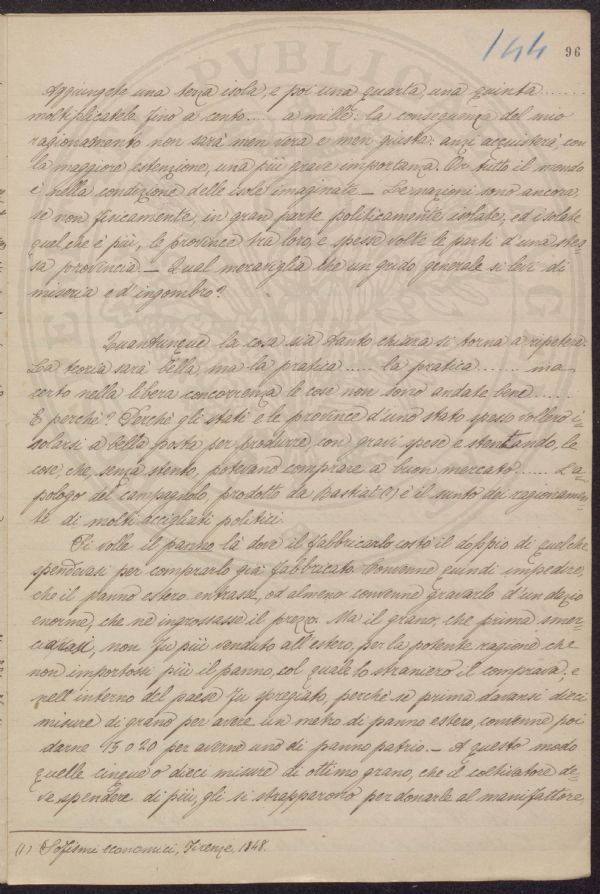 144 96
Aggiungete una terza isola, e poi una quarta, una quinta.......
moltiplicatele fino a cento..... a mille: la conseguenza del mio
ragionamento non sarà men vera e men giusta: anzi acquisterà con
la maggiore estenzione, una più grave importanza. Or tutto il mondo
è nella condizione delle isole imaginate — Le nazioni sono ancora,
se non fisicamente, in gran parte politicamente isolate; ed isolate
quel che è più, le province tra loro, e spesse volte le parti d'una stes-
sa provincia — Qual meraviglia che un grido generale si levi di
miseria e d'ingombro?
Quantunque la cosa sia tanto chiara si torna a ripetere:
La teoria sarà bella, ma la pratica..... la pratica....... ma
certo nella libera concorrenza le cose non sono andate bene......
E perchè? Perchè gli stati e le province d'uno stato spesso vollero i-
solarsi a bella posta per produrre, con gravi spese e stentando, le
cose che, senza stento, potevano comprare a buon mercato...... L'a-
pologo del campagnolo, prodotto da Bastiat (1) è il sunto dei ragionamen-
ti di molti accigliati politici.
Si volle il panno là dove il fabbricarlo costò il doppio di quel che
spendevasi per comprarlo già fabbricato. Convenne quindi impedire,
che il panno estero entrasse, od almeno convenne gravarlo d'un dazio
enorme, che ne ingrossasse il prezzo. Ma il grano, che prima smer-
ciavasi, non fu più venduto all'estero, per la potente ragione che
non importossi più il panno, col quale lo straniero il comprava; e
nell'interno del paese fu spregiato, perchè se prima davansi dieci
misure di grano per avere un metro di panno estero, convenne poi
darne 15 o 20 per averne uno di panno patrio. — A questo modo
quelle cinque o dieci misure di ottimo grano, che il coltivatore de-
ve spendere di più, gli si strapparono per donarle al manifattore,
(1) Sofismi economici, Firenze, 1848.